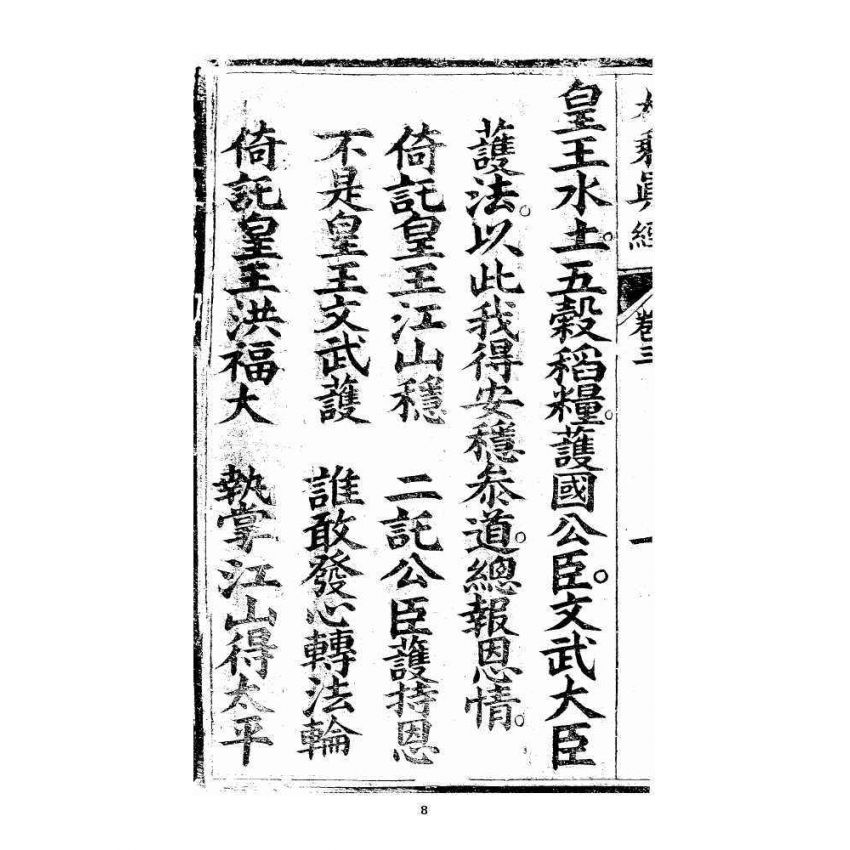 眞經 卷三 一
皇王水土。五穀稻糧。護國公臣。文武大臣
護法。以此我得安穩叅道。總報恩情。
倚託皇王江山穩 二託公臣護持恩
不是皇王文武護 誰敢發心轉法輪
倚託皇王洪福大 執掌江山得太平
8